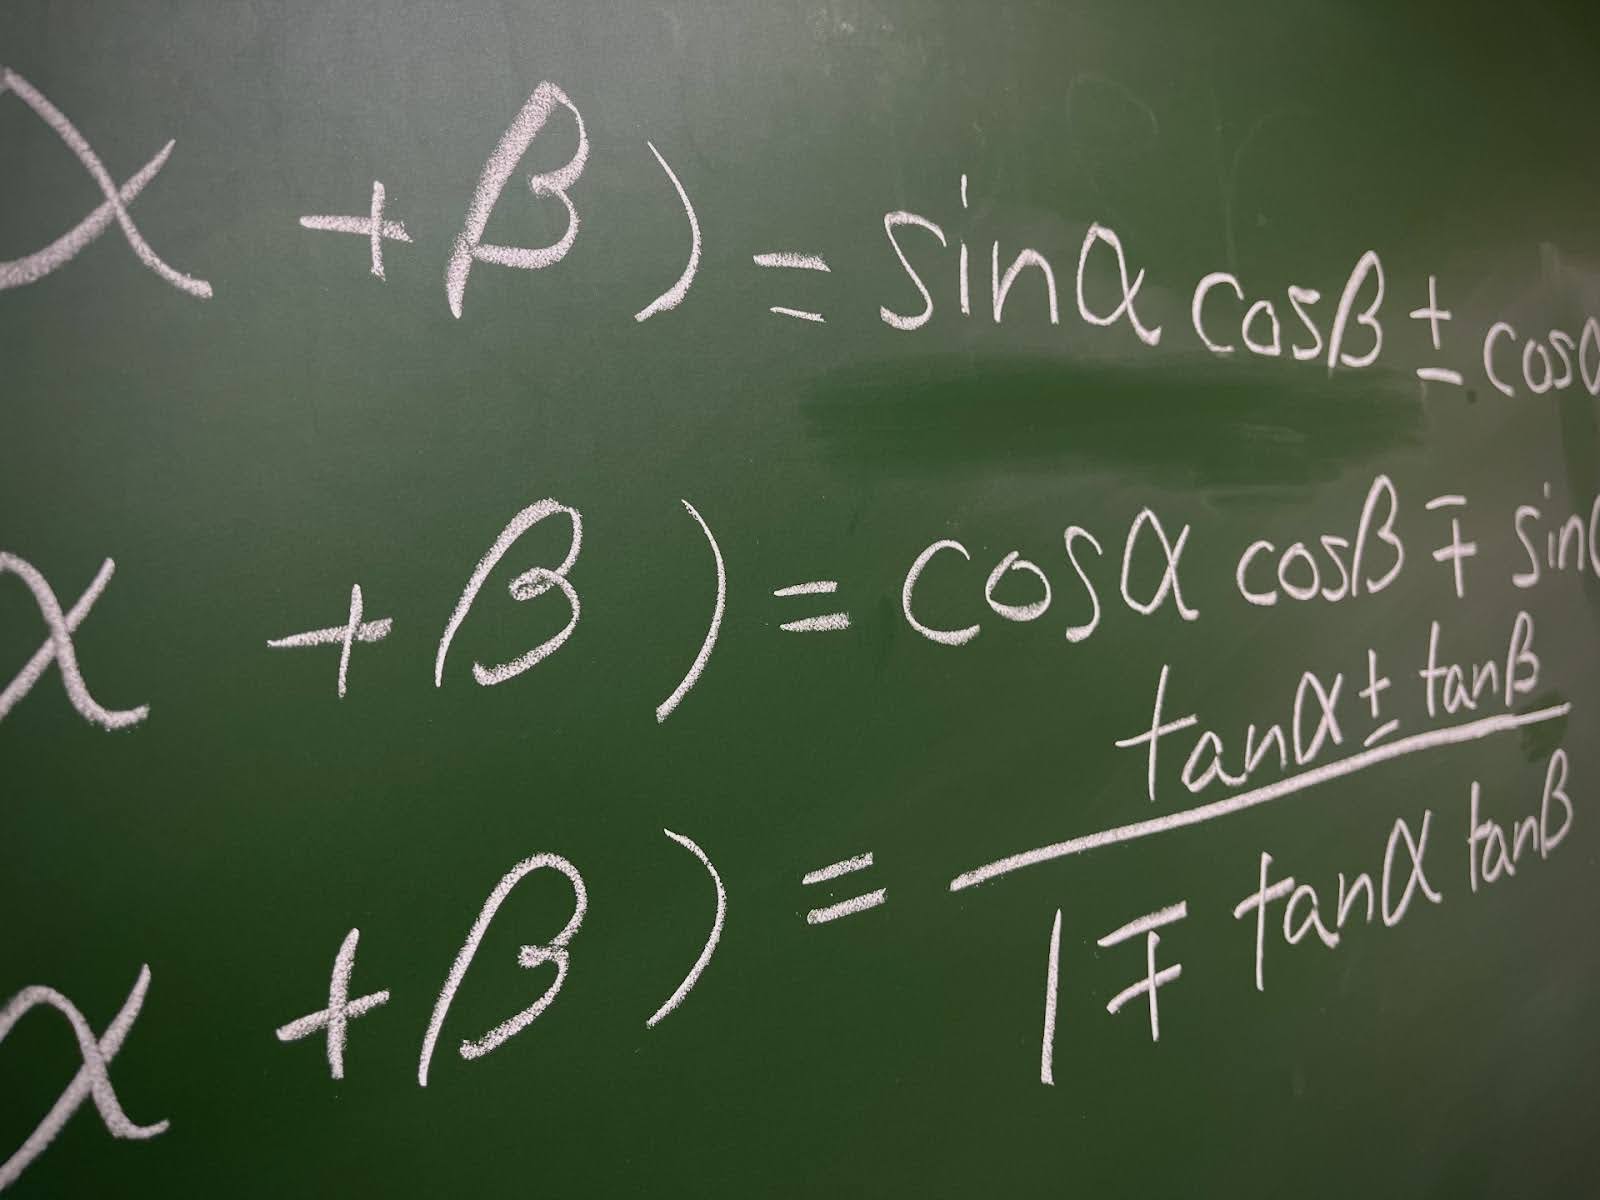 α + β) = sinα cosβ ± cosα
α + β) = cosα cosβ ∓ sin
α + β) = tanα ± tanβ / 1 ∓ tanα tanβ